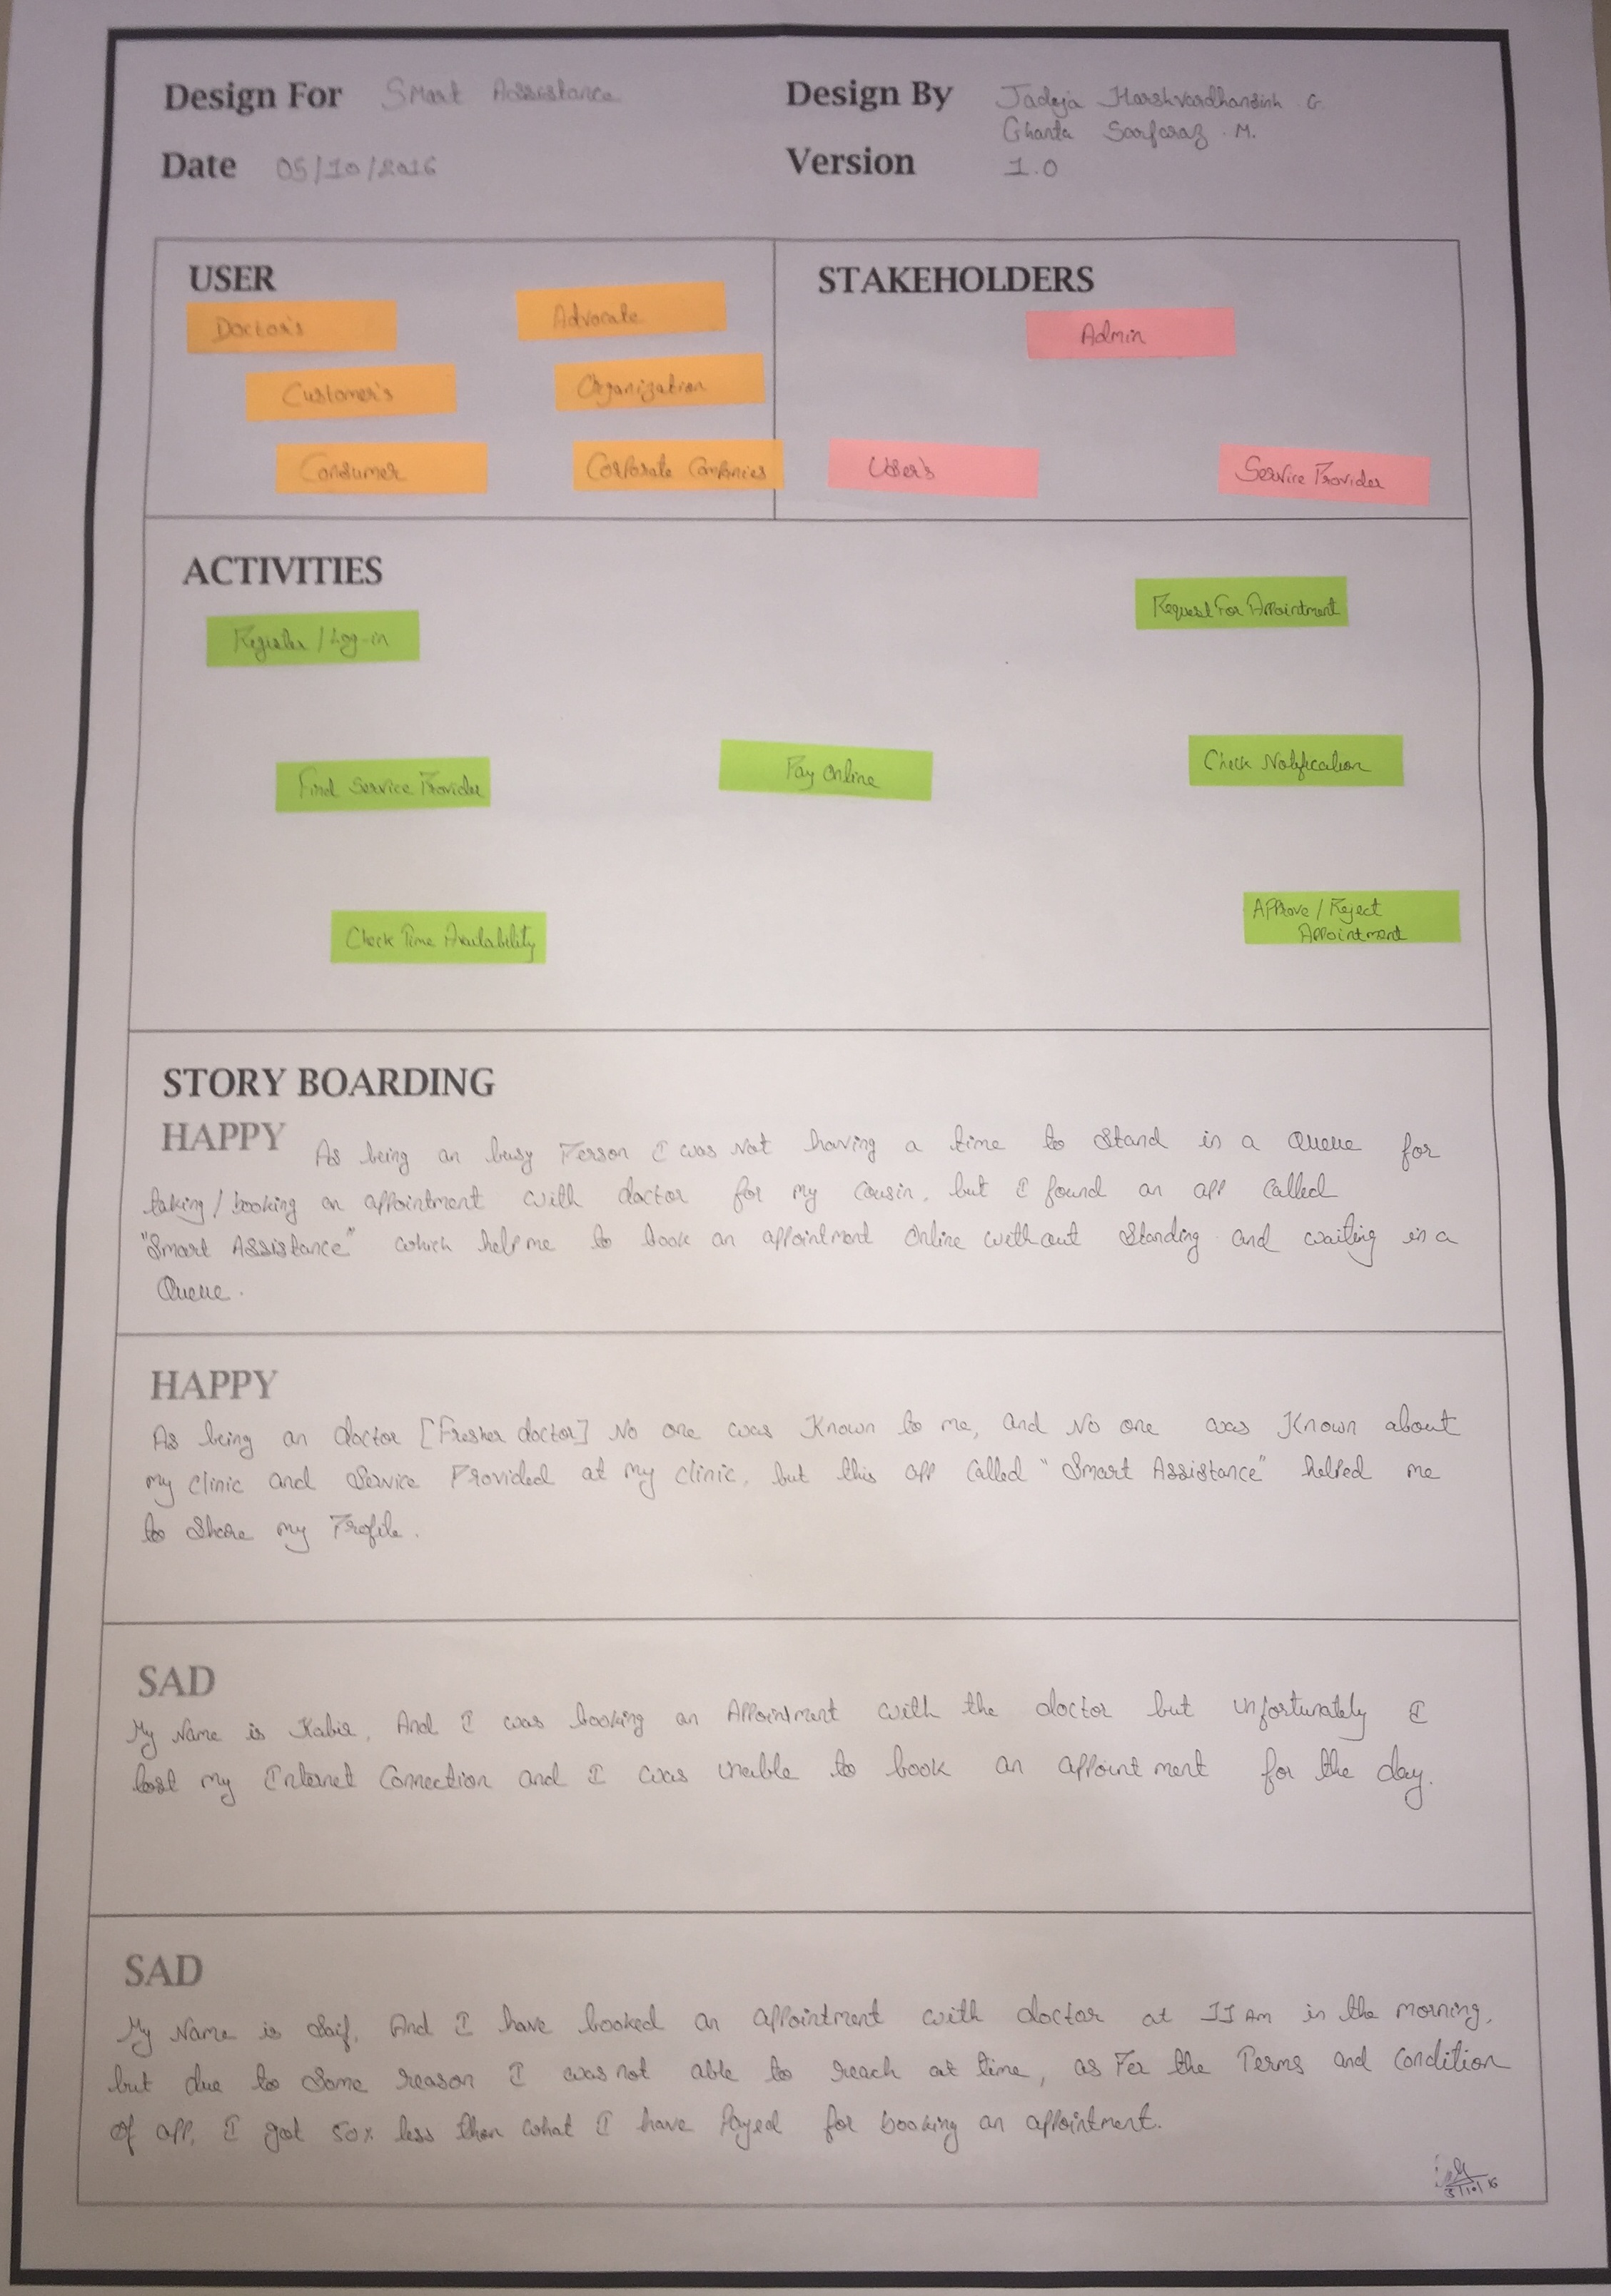 Design For Smart Assistance
Design By Jadeja Harshvardhansinh. G.
Ghanta Sarfaraz. M.
Date 05/10/2016
Version 1.0
USER
Doctor's
Advocate
Customer's
Organization
Consumer
Corporate Companies
STAKEHOLDERS
Admin
User's
Service Provider
ACTIVITIES
Request For Appointment
Register / Log-in
Find Service Provider
Pay Online
Check Notification
Check Time Availability
Approve / Reject
Appointment
STORY BOARDING
HAPPY As being an busy Person I was Not having a time to Stand in a Queue for
taking / booking an appointment with doctor for my Cousin, but I found an app called
"Smart Assistance" which help me to book an appointment Online without Standing and waiting in a
Queue.
HAPPY
As being an doctor [Fresher doctor] No one was Known to me, and No one was Known about
my clinic and Service Provided at my clinic, but this app Called "Smart Assistance" helped me
to Share my Profile.
SAD
My Name is Kabir, And I was booking an Appointment with the doctor but unfortunately I
lost my Internet Connection and I was unable to book an appointment for the day.
SAD
My Name is Saif, And I have booked an appointment with doctor at 11 Am in the morning,
but due to Some reason I was not able to reach at time, as Per the Terms and Condition
Of app, I got 50% less then what I have Payed for booking an appointment.
5/10/16